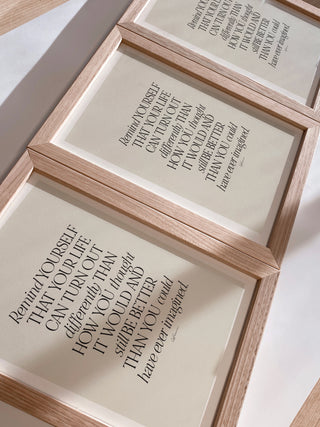 Remind YOURSELF
THAT YOUR LIFE
CAN TURN OUT
differently THAN
HOW YOU thought
IT WOULD AND
still BE BETTER
THAN YOU could
have ever imagined.
Remind YOURSELF
THAT YOUR LIFE
CAN TURN OUT
differently THAN
HOW YOU thought
IT WOULD AND
still BE BETTER
THAN YOU could
have ever imagined.
Remind YOURSELF
THAT YOUR LIFE
CAN TURN OUT
differently THAN
HOW YOU thought
IT WOULD AND
still BE BETTER
THAN YOU could
have ever imagined.